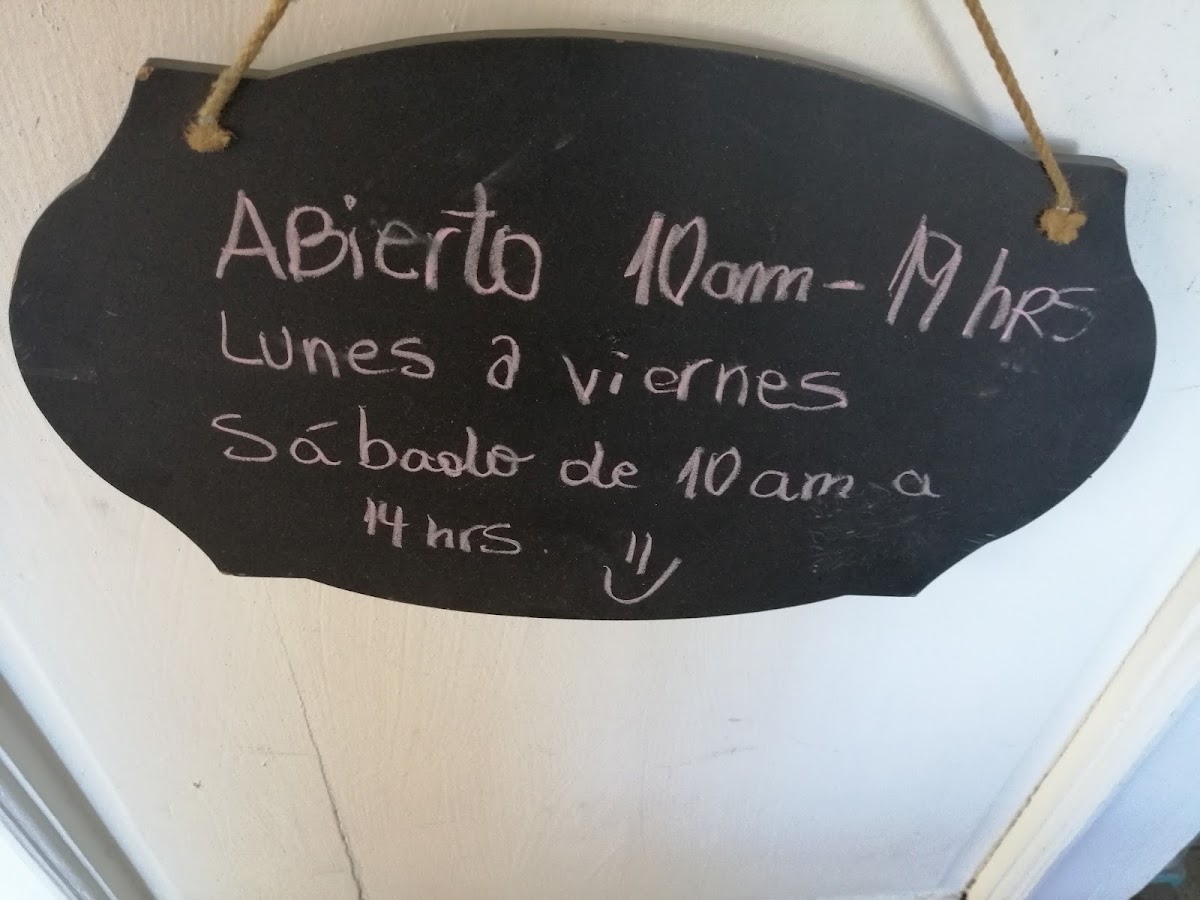 ABierto 10am - 19 hRS
Lunes a viernes
Sábado de 10 am a
14 hrs.